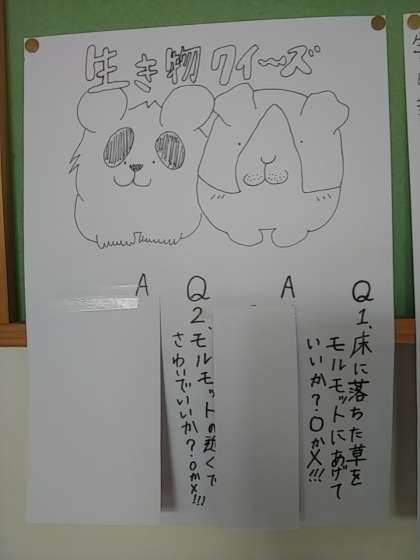 生き物クイーズ
Q
1、床に落ちた草を
モルモットにあげて
いいか?〇か×!!!
A
Q
2、モルモットの近くで
さわいでいいか?〇か×!!!
A